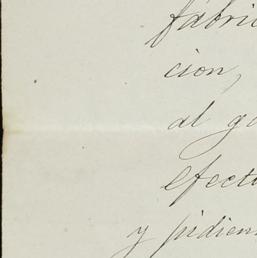 fabri
cion,
al go
efect
y pidien